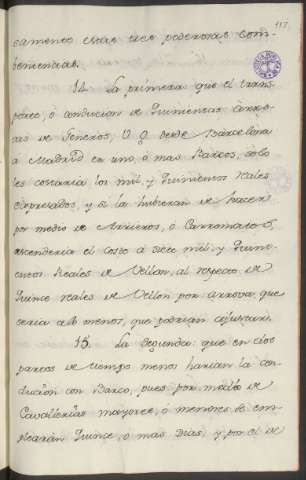 samente estas tres poderosas com-
beniencias.
14. La primera que el trans-
porte, ó conducion de Quinientas Arro-
as de Generos, desde Barcelona
á Madrid en uno, ó mas Barcos, solo
les costaria los mil, y Quinientos Reales
expresados y si la hubieran de hacer
por medio de Arrieros, ó Carromatos,
ascenderia el costo á siete mil, y Quini-
entos Reales de Vellon, al respecto de
Quince reales de Vellon por Arrova, que
seria a lo menos, que podrian ajustar.
15. La segunda: que en cios
pareos de tiempo menos harian la con-
ducion con Barco, pues por medio de
Cavallerias mayores, ó menores de em-
plearán Quince, ó mas Dias, y por el de